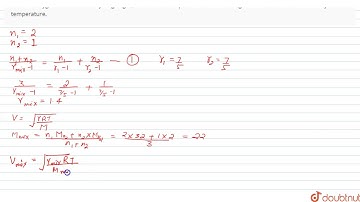 temperature.
n₁ = 2
n₂ = 1
(n₁+n₂)/(γmix -1) = n₁/(γ₁ -1) + n₂/(γ₂ -1) — ① γ₁ = 7/5 γ₂ = 7/5
3/(γmix -1) = 2/(7/5 -1) + 1/(7/5 -1)
γmix = 1.4
V = √(γRT/M)
Mmix = (n₁ M₁ + n₂ × M₂)/(n₁ + n₂) = (2×32 + 1×2)/3 = 22
Vmix = √(γmix RT/Mm)
doubtnut